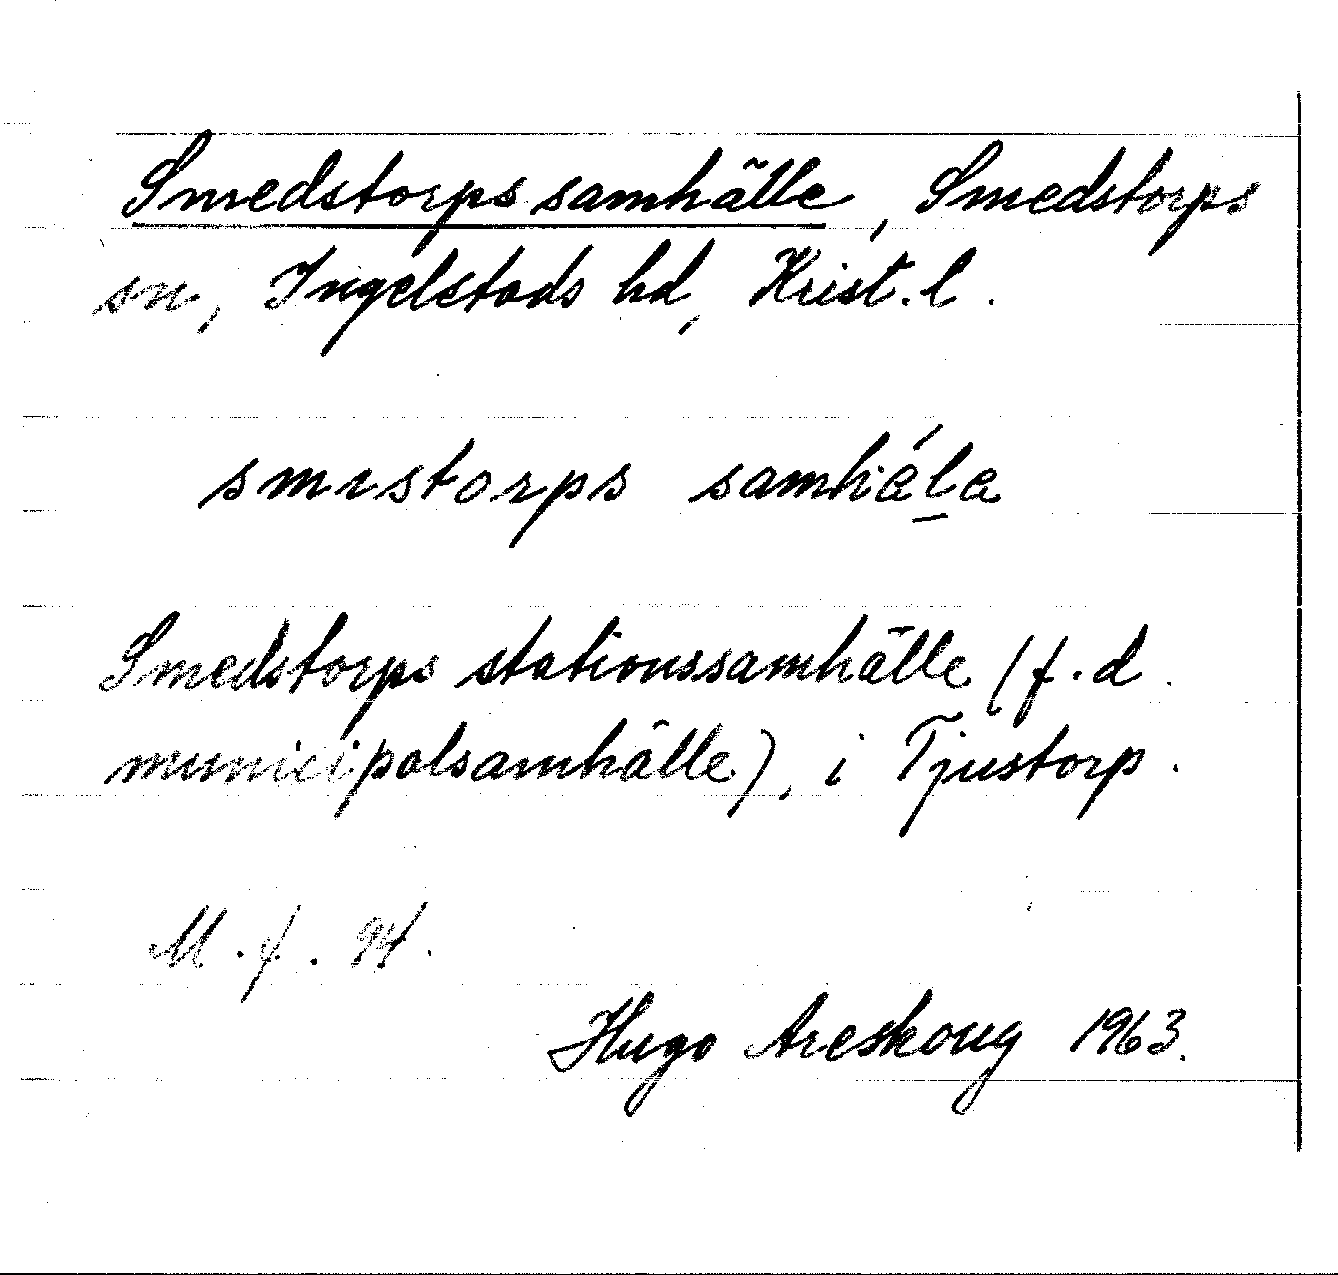 Smedstorps samhälle, Smedstorps
sn, Ingelstads hd, Krist. l.
smıstorps samhála
Smedstorps stationssamhälle (f.d.
municipalsamhälle), i Tjustorp.
M.f. 94.
Hugo Areskoug 1963.